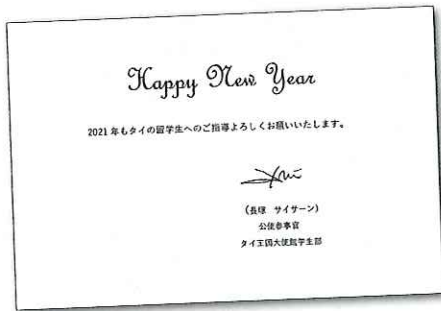 Happy New Year
2021年もタイの留学生へのご指導よろしくお願いいたします。
(長塚 サイサーン)
公使参事官
タイ王国大使館学生部